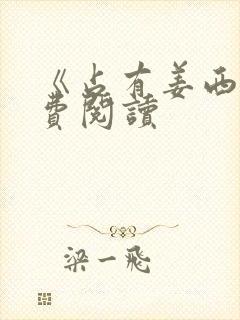 《占有姜西
費閱讀
梁一飛